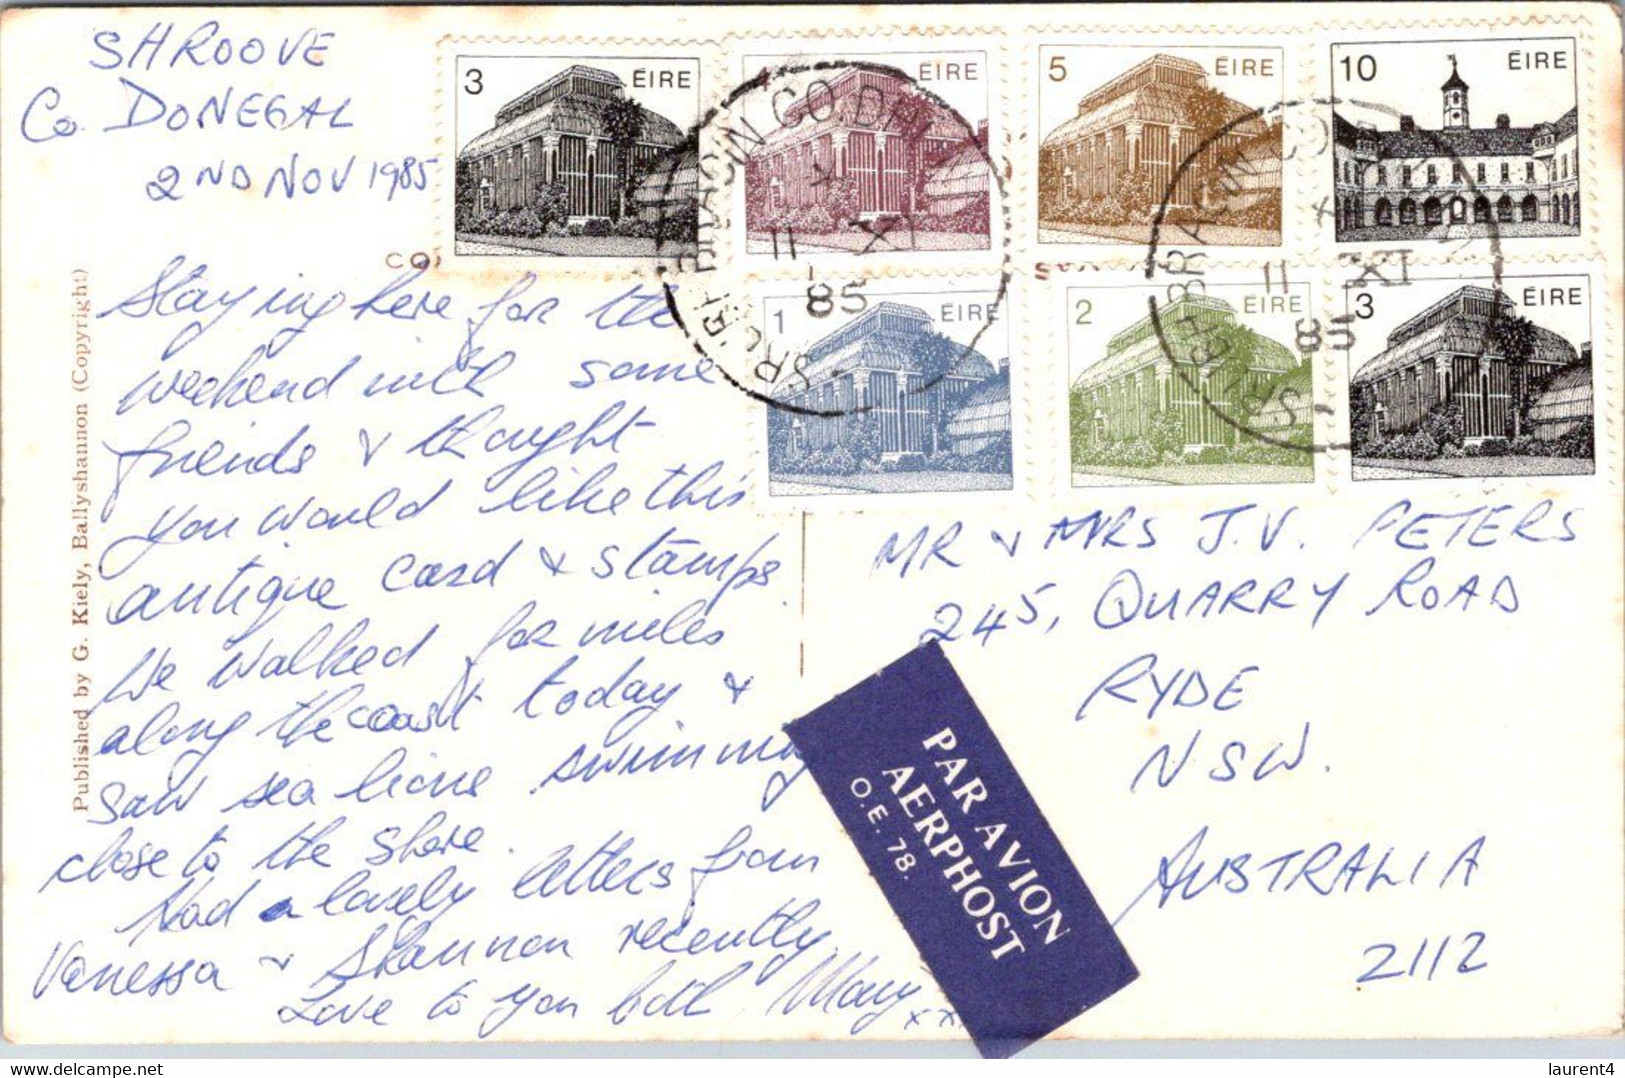 SHROOVE
Co. DONEGAL
2ND NOV 1985
Staying here for the
weekend with some
friends & thought
you would like this
antique card & stamps.
We walked for miles
along the coast today &
saw sea lions swimming
close to the shore.
Had a lovely letters from
Vanessa & Shannon recently
Love to you both Mary xxx
Published by G. Kiely, Ballyshannon (Copyright)
CO
3 ÉIRE
ÉIRE
5 ÉIRE
10 ÉIRE
1 ÉIRE
2 ÉIRE
3 ÉIRE
11 XI
85
11 XI
85
MR & MRS J.V. PETERS
245, QUARRY ROAD
RYDE
NSW.
AUSTRALIA
2112
PAR AVION
AERPHOST
O.E. 78.
laurent4